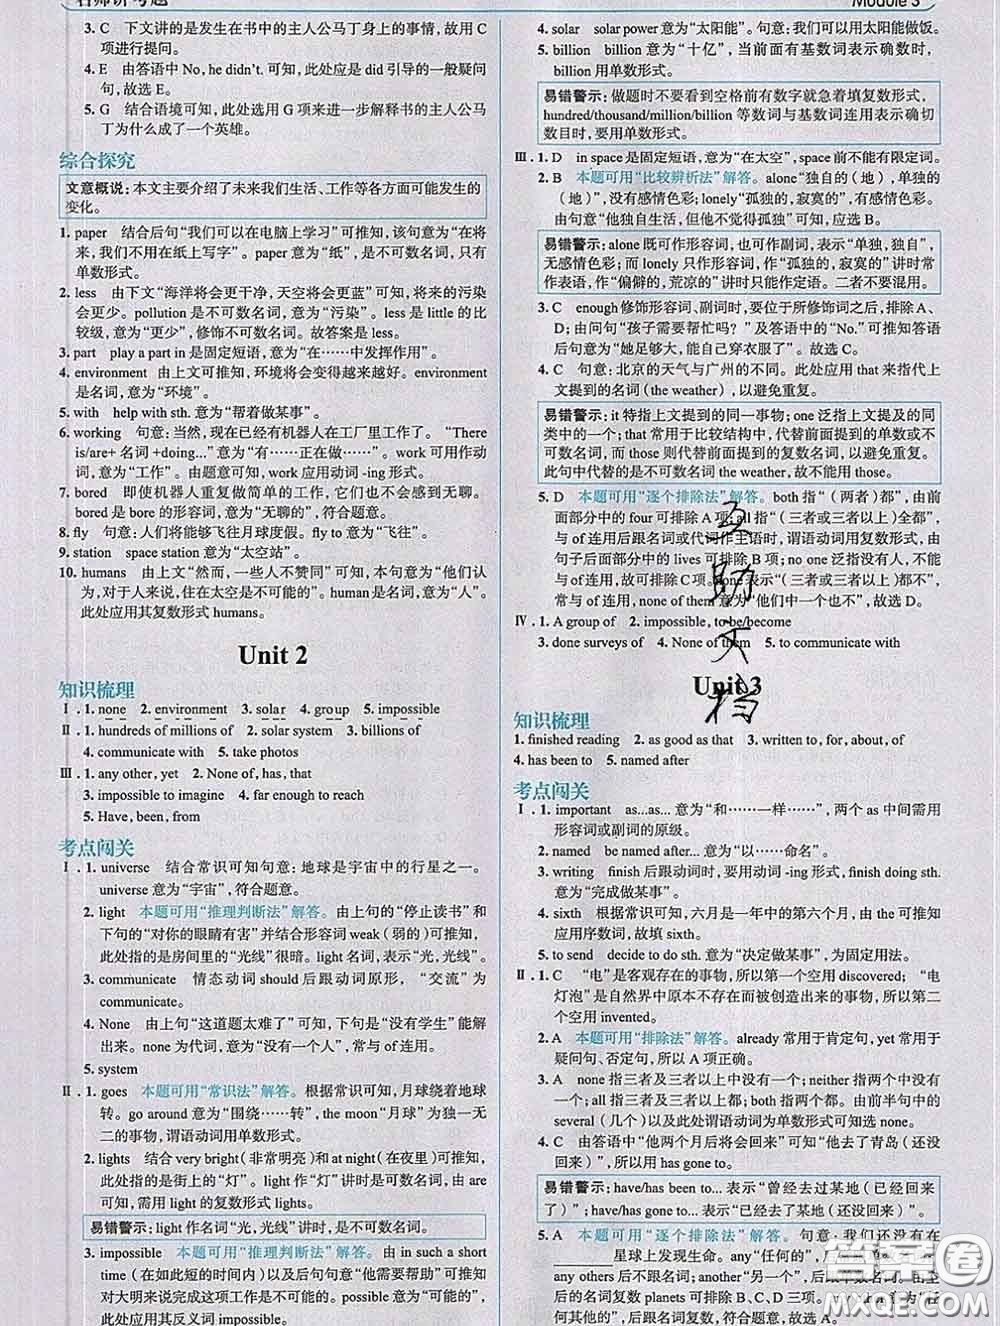 名师讲考题
Module 3
3. C 下文讲的是发生在书中的主人公马丁身上的事情,故用 C
项进行提问。
4. E 由答语中 No, he didn't. 可知,此处应是 did 引导的一般疑问
句,故选 E。
5. G 结合语境可知,此处选用 G 项来进一步解释书的主人公马
丁为什么成了一个英雄。
综合探究
文意概说:本文主要介绍了未来我们生活、工作等各方面可能发生的
变化。
1. paper 结合后句“我们可以在电脑上学习”可推知,该句意为“在将
来,我们不用在纸上写字”。paper 意为“纸”,是不可数名词,只有
单数形式。
2. less 由下文“海洋将会更干净,天空将会更蓝”可知,将来的污染
会更少。pollution 是不可数名词,意为“污染”。less 是 little 的比
较级,意为“更少”,修饰不可数名词。故答案是 less。
3. part play a part in 是固定短语,意为“在……中发挥作用”。
4. environment 由上文可推知,环境将会变得越来越好。environment
是名词,意为“环境”。
5. with help with sth. 意为“帮着做某事”。
6. working 句意:当然,现在已经有机器人在工厂里工作了。“There
is/are+ 名词 +doing...”意为“有……正在做……”。work 可用作动
词,意为“工作”。由题意可知,work 应用动词 -ing 形式。
7. bored 即使机器人重复做简单的工作,它们也不会感到无聊。
bored 是 bore 的形容词,意为“无聊的”,符合题意。
8. fly 句意:人们将能够飞往月球度假。fly to 意为“飞往”。
9. station space station 意为“太空站”。
10. humans 由上文“然而,一些人不赞同”可知,本句意为“他们认
为,对于人来说,住在太空是不可能的”。human 是名词,意为“人”。
此处应用其复数形式 humans。
Unit 2
知识梳理
Ⅰ. 1. none 2. environment 3. solar 4. group 5. impossible
Ⅱ. 1. hundreds of millions of 2. solar system 3. billions of
4. communicate with 5. take photos
Ⅲ. 1. any other, yet 2. None of, has, that
3. impossible to imagine 4. far enough to reach
5. Have, been, from
考点闯关
Ⅰ. 1. universe 结合常识可知句意:地球是宇宙中的行星之一。
universe 意为“宇宙”,符合题意。
2. light 本题可用“推理判断法”解答。由上句的“停止读书”和
下句的“对你的眼睛有害”并结合形容词 weak(弱的)可知,
此处指的是房间里的“光线”很暗。light 名词,表示“光,光线”。
3. communicate 情态动词 should 后跟动词原形,“交流”为
communicate。
4. None 由上句“这道题太难了”可知,下句是“没有学生”能解
出来。none 为代词,意为“没有一个人”,常与 of 连用。
5. system
Ⅱ. 1. goes 本题可用“常识法”解答。根据常识可知,月球绕着地球
转。go around 意为“围绕……转”,the moon“月球”为独一无
二的事物,谓语动词用单数形式。
2. lights 结合 very bright(非常明亮)和 at night(在夜里)可知,
此处指的是街上的“灯”。light 作“灯”讲时是可数名词,由 are
可知,需用 light 的复数形式 lights。
易错警示:light 作名词“光,光线”讲时,是不可数名词。
3. impossible 本题可用“推理判断法”解答。由 in such a short
time(在如此短的时间内)以及后句句意“他需要帮助”可推知
对大明来说完成这项工作是不可能的。possible 意为“可能的”,
此处应用其反义词 impossible。
4. solar solar power 意为“太阳能”。句意:我们可以用太阳能做饭。
5. billion billion 意为“十亿”,当前面有基数词表示确数时,
billion 用单数形式。
易错警示:做题时不要看到空格前有数字就急着填复数形式,
hundred/thousand/million/billion 等数词与基数词连用表示确切
数目时,要用单数形式。
Ⅲ. 1. D in space 是固定短语,意为“在太空”,space 前不能有限定词。
2. B 本题可用“比较辨析法”解答。alone“独自的(地),单独的
(地)”,没有感情色彩;lonely“孤独的,寂寞的”,有感情色彩。
由句意“他独自生活,但他不觉得孤独”可知,应选 B。
易错警示:alone 既可作形容词,也可作副词,表示“单独,独自”,
无感情色彩;而 lonely 只作形容词,作“孤独的,寂寞的”讲时常
作表语,作“偏僻的,荒凉的”讲时只能作定语。二者不要混用。
3. C enough 修饰形容词、副词时,要位于所修饰词之后,排除 A、
D;由问句“孩子需要帮忙吗?”及答语中的“No.”可推知答语
后句意为“她足够大,能自己穿衣服了”。故选 C。
4. C 句意:北京的天气与广州的不同。此处应用 that 来指代上
文提到的名词(the weather),以避免重复。
易错警示:it 特指上文提到的同一事物;one 泛指上文提及的同
类中的一个;that 常用于比较结构中,代替前面提到的单数或不
可数名词,而 those 则代替前面提到的复数名词,以避免重复。
此句中代替的是不可数名词 the weather,故不能用 those。
5. D 本题可用“逐个排除法”解答。both 指“(两者)都”,由前
面部分中的 four 可排除 A 项;all 指“(三者或三者以上)全都”,
与 of 连用后跟名词或代词作主语时,谓语动词用复数形式,由
句子后面部分中的 lives 可排除 B 项;no one 泛指没有人,不能
与 of 连用,故可排除 C 项。none 表示“(三者或三者以上)都不”,
常与 of 连用,none of them 意为“他们中一个也不”,故选 D。
Ⅳ. 1. A group of 2. impossible, to be/become
3. done surveys of 4. None of them 5. to communicate with
Unit 3
知识梳理
1. finished reading 2. as good as that 3. written to, for, about, of
4. has been to 5. named after
考点闯关
Ⅰ. 1. important as...as... 意为“和……一样……”,两个 as 中间需用
形容词或副词的原级。
2. named be named after... 意为“以……命名”。
3. writing finish 后跟动词时,要用动词 -ing 形式,finish doing sth.
意为“完成做某事”。
4. sixth 根据常识可知,六月是一年中的第六个月,由 the 可推知
应用序数词,故填 sixth。
5. to send decide to do sth. 意为“决定做某事”,为固定用法。
Ⅱ. 1. C “电”是客观存在的事物,所以第一个空用 discovered;“电
灯泡”是自然界中原本不存在而被创造出来的事物,所以第二
个空用 invented。
2. A 本题可用“排除法”解答。already 常用于肯定句,yet 常用于
疑问句、否定句,所以 A 项正确。
3. A none 指三者及三者以上中没有一个;neither 指两个中没有
一个;all 指三者及三者以上都;both 指两个都。由前半句中的
several(几个)以及此处谓语动词为单数形式可知选 none。
4. C 由答语中“他两个月后将会回来”可知“他去了青岛(还没
回来)”,所以用 has gone to。
易错警示:have/has been to... 表示“曾经去过某地(已经回来
了)”;have/has gone to... 表示“已经去了某地(还没回来)”。
5. A 本题可用“逐个排除法”解答。句意:我们还没有在
星球上发现生命。any“任何的”,
any others 后不跟名词;another“另一个”,后跟可数名词单
后的名词复数 planets 可排除 B、C、D 三项。any other 意为“任何
其他的”,后跟名词复数,符合题意,故选 A。
答案卷
MXQE.COM